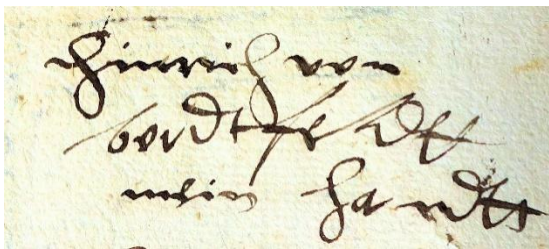 Hinrich von
bordtfeldt
mein handtt